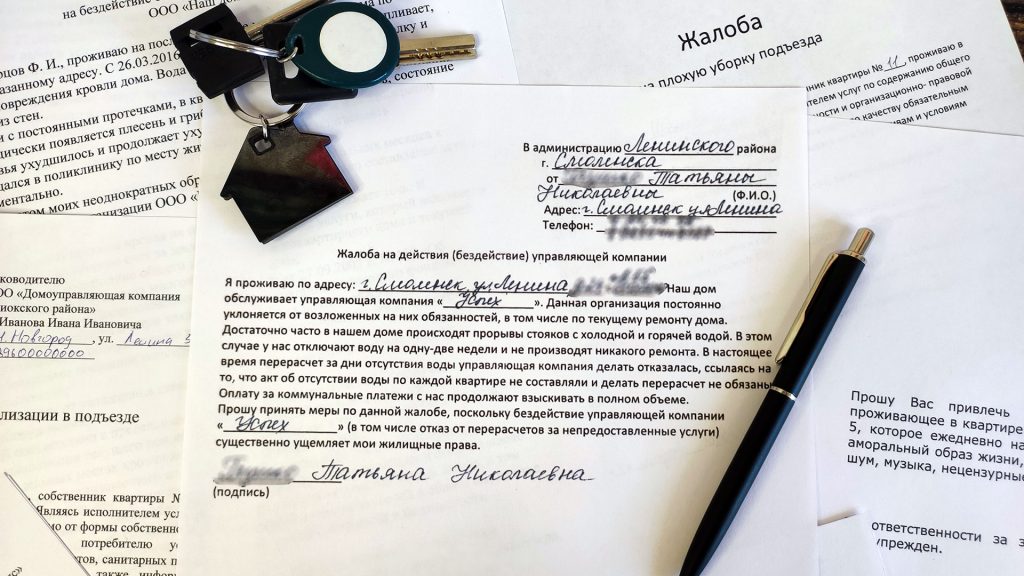 на бездействие
ООО «Наш дом
рцов Ф. И., проживаю на посл
казанному адресу. С 26.03.2016
овреждения кровли дома. Вода
из стен.
и с постоянными протечками, в кв
дически появляется плесень и гриб
вья ухудшилось и продолжает уху
щался в поликлинику по месту жи
ментально.
том моих неоднократных обр
рганизации ООО «
пливает,
дку и
состояние
Жалоба
на плохую уборку подъезда
ник квартиры № 11, проживаю в
телем услуг по содержанию общего
ности и организационно- правовой
ю качеству обязательным
вам и условиям
В администрацию Ленинского района
г. Смоленска
от Татьяны
Николаевны (Ф.И.О.)
Адрес: г. Смоленск ул Ленина
Телефон:
Жалоба на действия (бездействие) управляющей компании
Я проживаю по адресу: г. Смоленск, ул Ленина Наш дом
обслуживает управляющая компания « Успех ». Данная организация постоянно
уклоняется от возложенных на них обязанностей, в том числе по текущему ремонту дома.
Достаточно часто в нашем доме происходят прорывы стояков с холодной и горячей водой. В этом
случае у нас отключают воду на одну-две недели и не производят никакого ремонта. В настоящее
время перерасчет за дни отсутствия воды управляющая компания делать отказалась, ссылаясь на
то, что акт об отсутствии воды по каждой квартире не составляли и делать перерасчет не обязаны.
Оплату за коммунальные платежи с нас продолжают взыскивать в полном объеме.
Прошу принять меры по данной жалобе, поскольку бездействие управляющей компании
« Успех » (в том числе отказ от перерасчетов за непредоставленные услуги)
существенно ущемляет мои жилищные права.
Татьяна Николаевна
(подпись)
ководителю
ОО «Домоуправляющая компания
иокского района»
Иванова Ивана Ивановича
Н. Новгород, ул. Ленина 5
9600000000
лизации в подъезде
, собственник квартиры №
Являясь исполнителем усл
мо от формы собственно
потребителю ус
тов, санитарных п
также инфор
Прошу Вас привлечь
проживающее в квартире
5, которое ежедневно на
аморальный образ жизни,
шум, музыка, нецензурные
ответственности за з
упрежден.